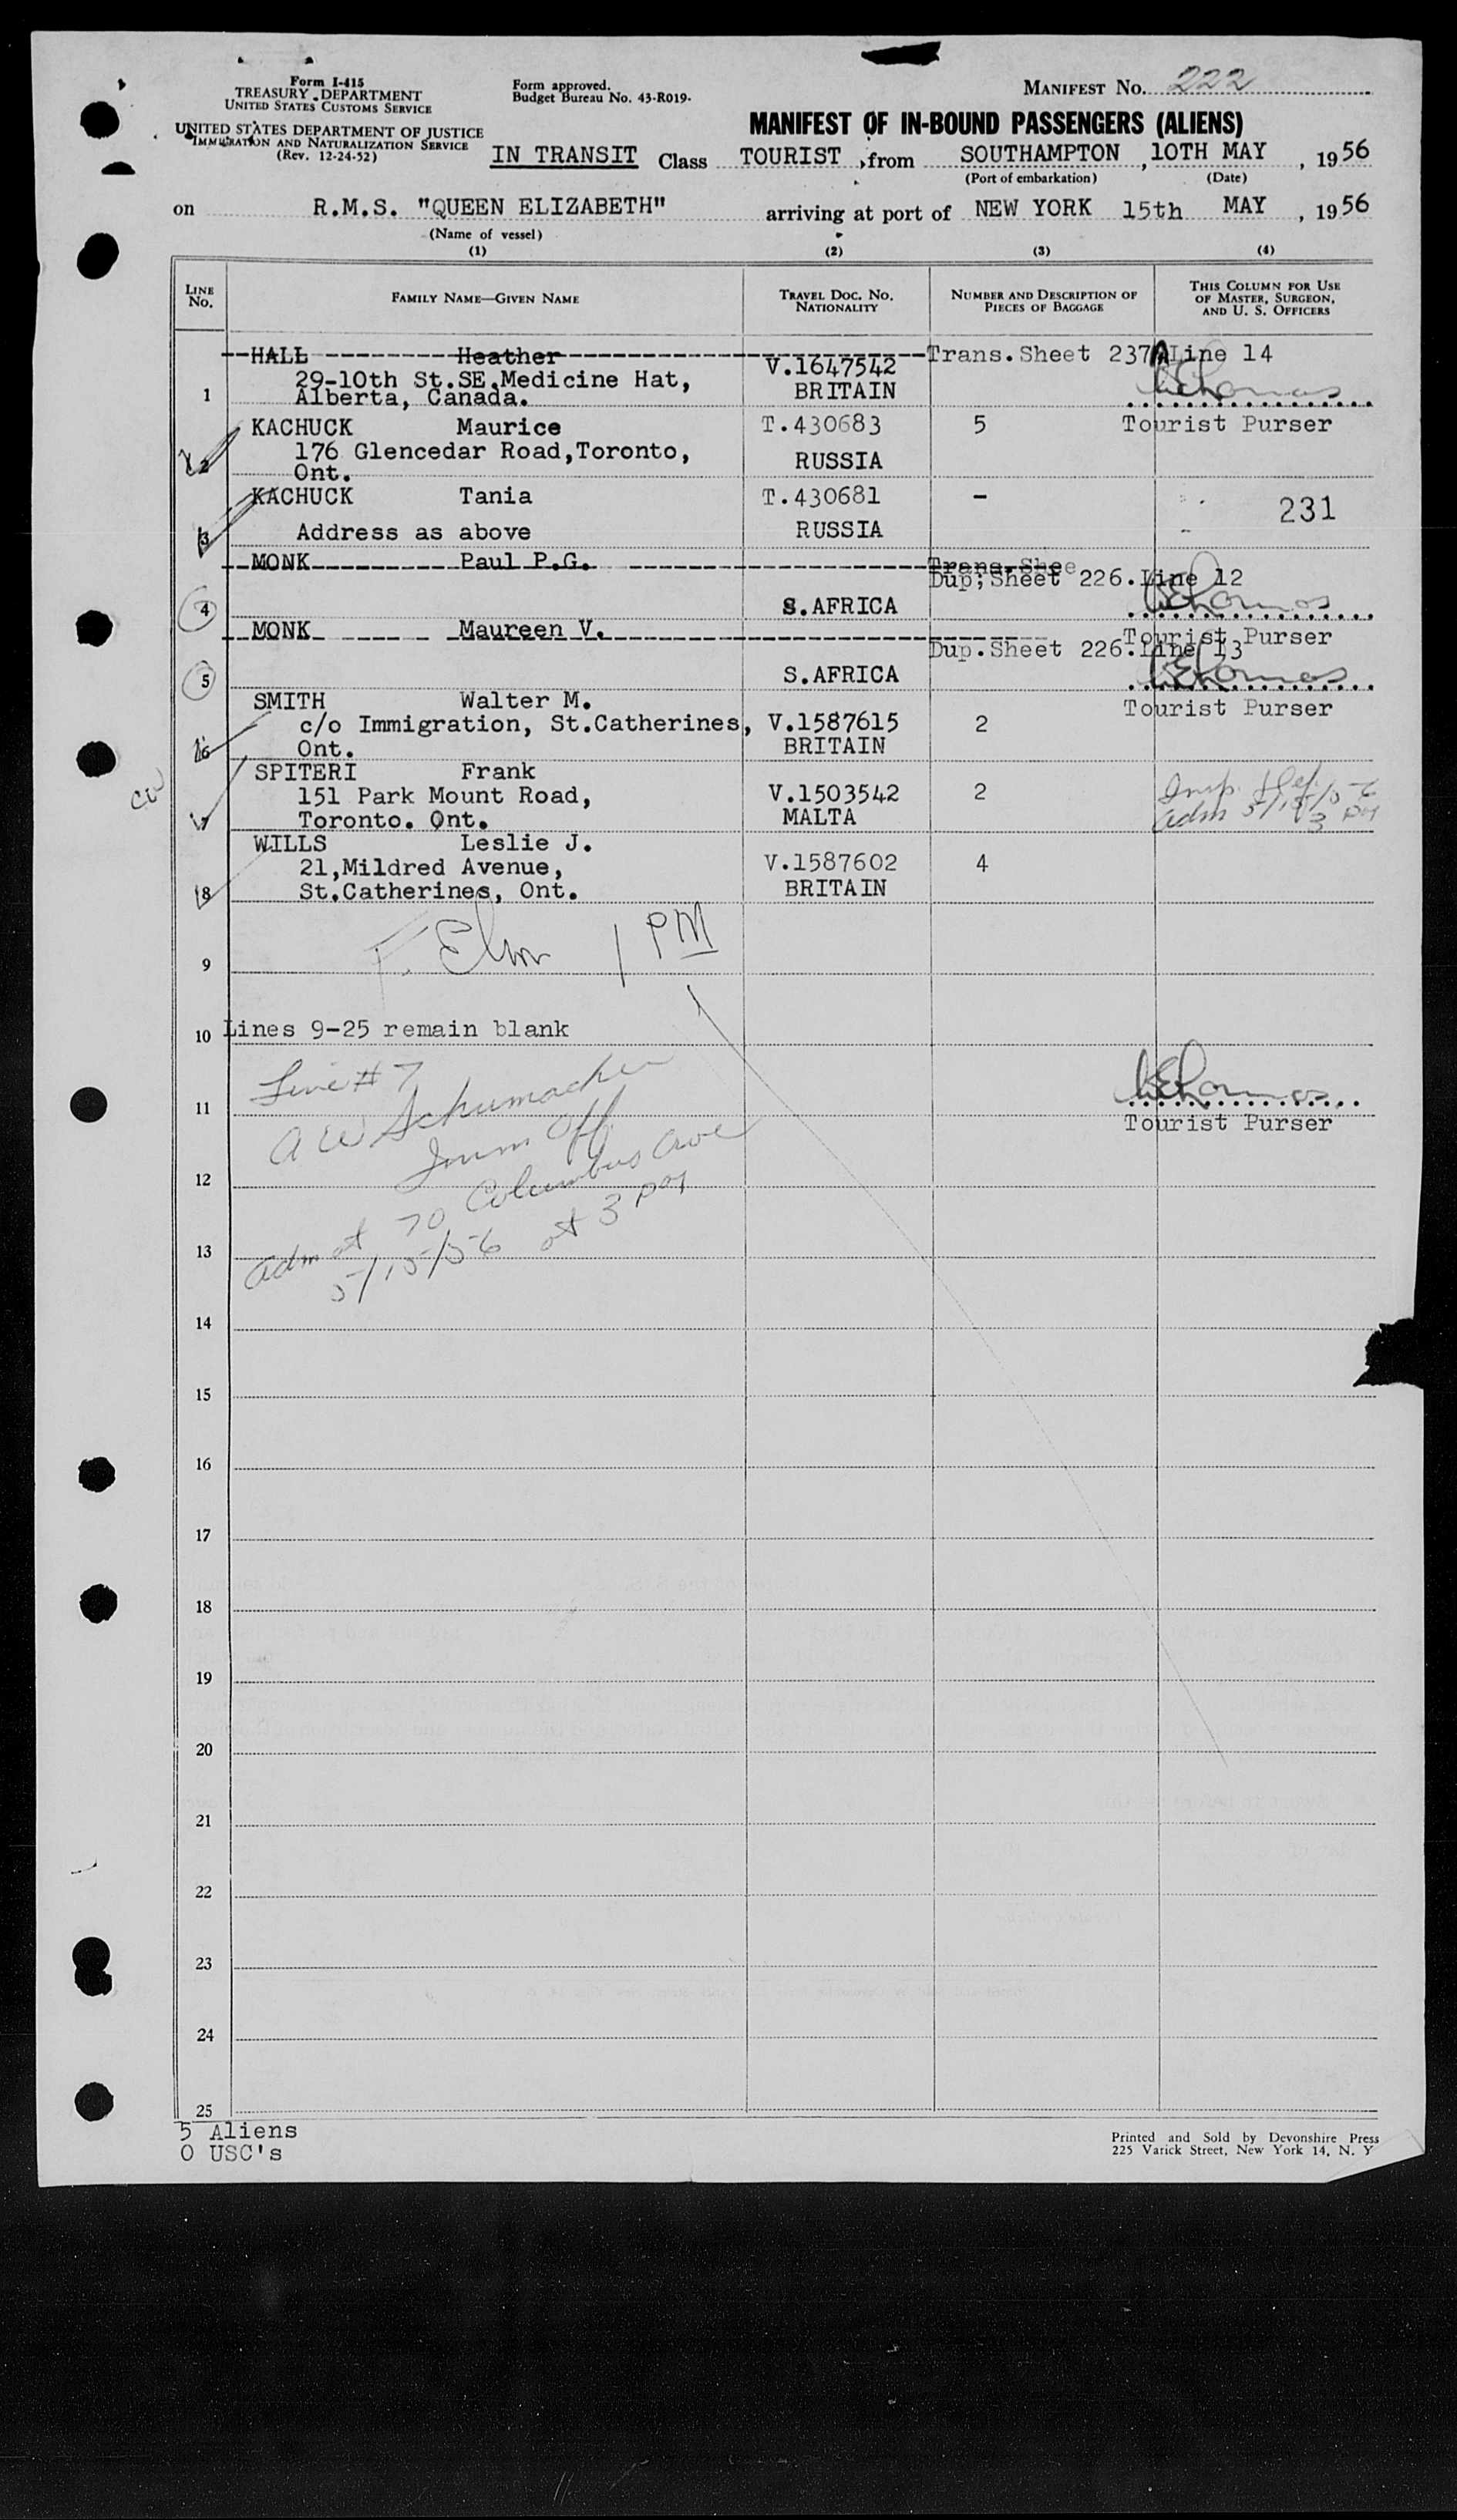 Form I-415
TREASURY DEPARTMENT
UNITED STATES CUSTOMS SERVICE
UNITED STATES DEPARTMENT OF JUSTICE
IMMIGRATION AND NATURALIZATION SERVICE
(Rev. 12-24-52)
Form approved.
Budget Bureau No. 43-R019.
MANIFEST No. 222
MANIFEST OF IN-BOUND PASSENGERS (ALIENS)
IN TRANSIT Class TOURIST, from SOUTHAMPTON, 10TH MAY, 1956
(Port of embarkation) (Date)
on R.M.S. "QUEEN ELIZABETH" arriving at port of NEW YORK 15th MAY, 1956
(Name of vessel)
(1) (2) (3) (4)
LINE No. FAMILY NAME—GIVEN NAME TRAVEL DOC. NO. NATIONALITY NUMBER AND DESCRIPTION OF PIECES OF BAGGAGE THIS COLUMN FOR USE OF MASTER, SURGEON, AND U. S. OFFICERS
HALL Heather V.1647542 Trans.Sheet 237A Line 14
29-10th St.SE.Medicine Hat, BRITAIN
1 Alberta, Canada.
KACHUCK Maurice T.430683 5 Tourist Purser
2 176 Glencedar Road,Toronto, RUSSIA
Ont.
KACHUCK Tania T.430681 - 231
3 Address as above RUSSIA
MONK Paul P.G. Trans.Shee
Dup; Sheet 226.Line 12
4 S.AFRICA
MONK Maureen V. Tourist Purser
Dup.Sheet 226.Line 13
5 S.AFRICA
SMITH Walter M. Tourist Purser
c/o Immigration, St.Catherines, V.1587615 2
6 Ont. BRITAIN
SPITERI Frank
151 Park Mount Road, V.1503542 2
7 Toronto. Ont. MALTA
adm 5/15/56
3 PM
cw
WILLS Leslie J.
21,Mildred Avenue, V.1587602 4
8 St.Catherines, Ont. BRITAIN
F. Elm 1 PM
9
10 Lines 9-25 remain blank
Line # 7
11 A W Schumacher
Tourist Purser
Imm Off.
12
adm at 70 Columbus Ave
13 5/15/56 at 3 PM
14
15
16
17
18
19
20
21
22
23
24
25
5 Aliens
0 USC's
Printed and Sold by Devonshire Press
225 Varick Street, New York 14, N. Y